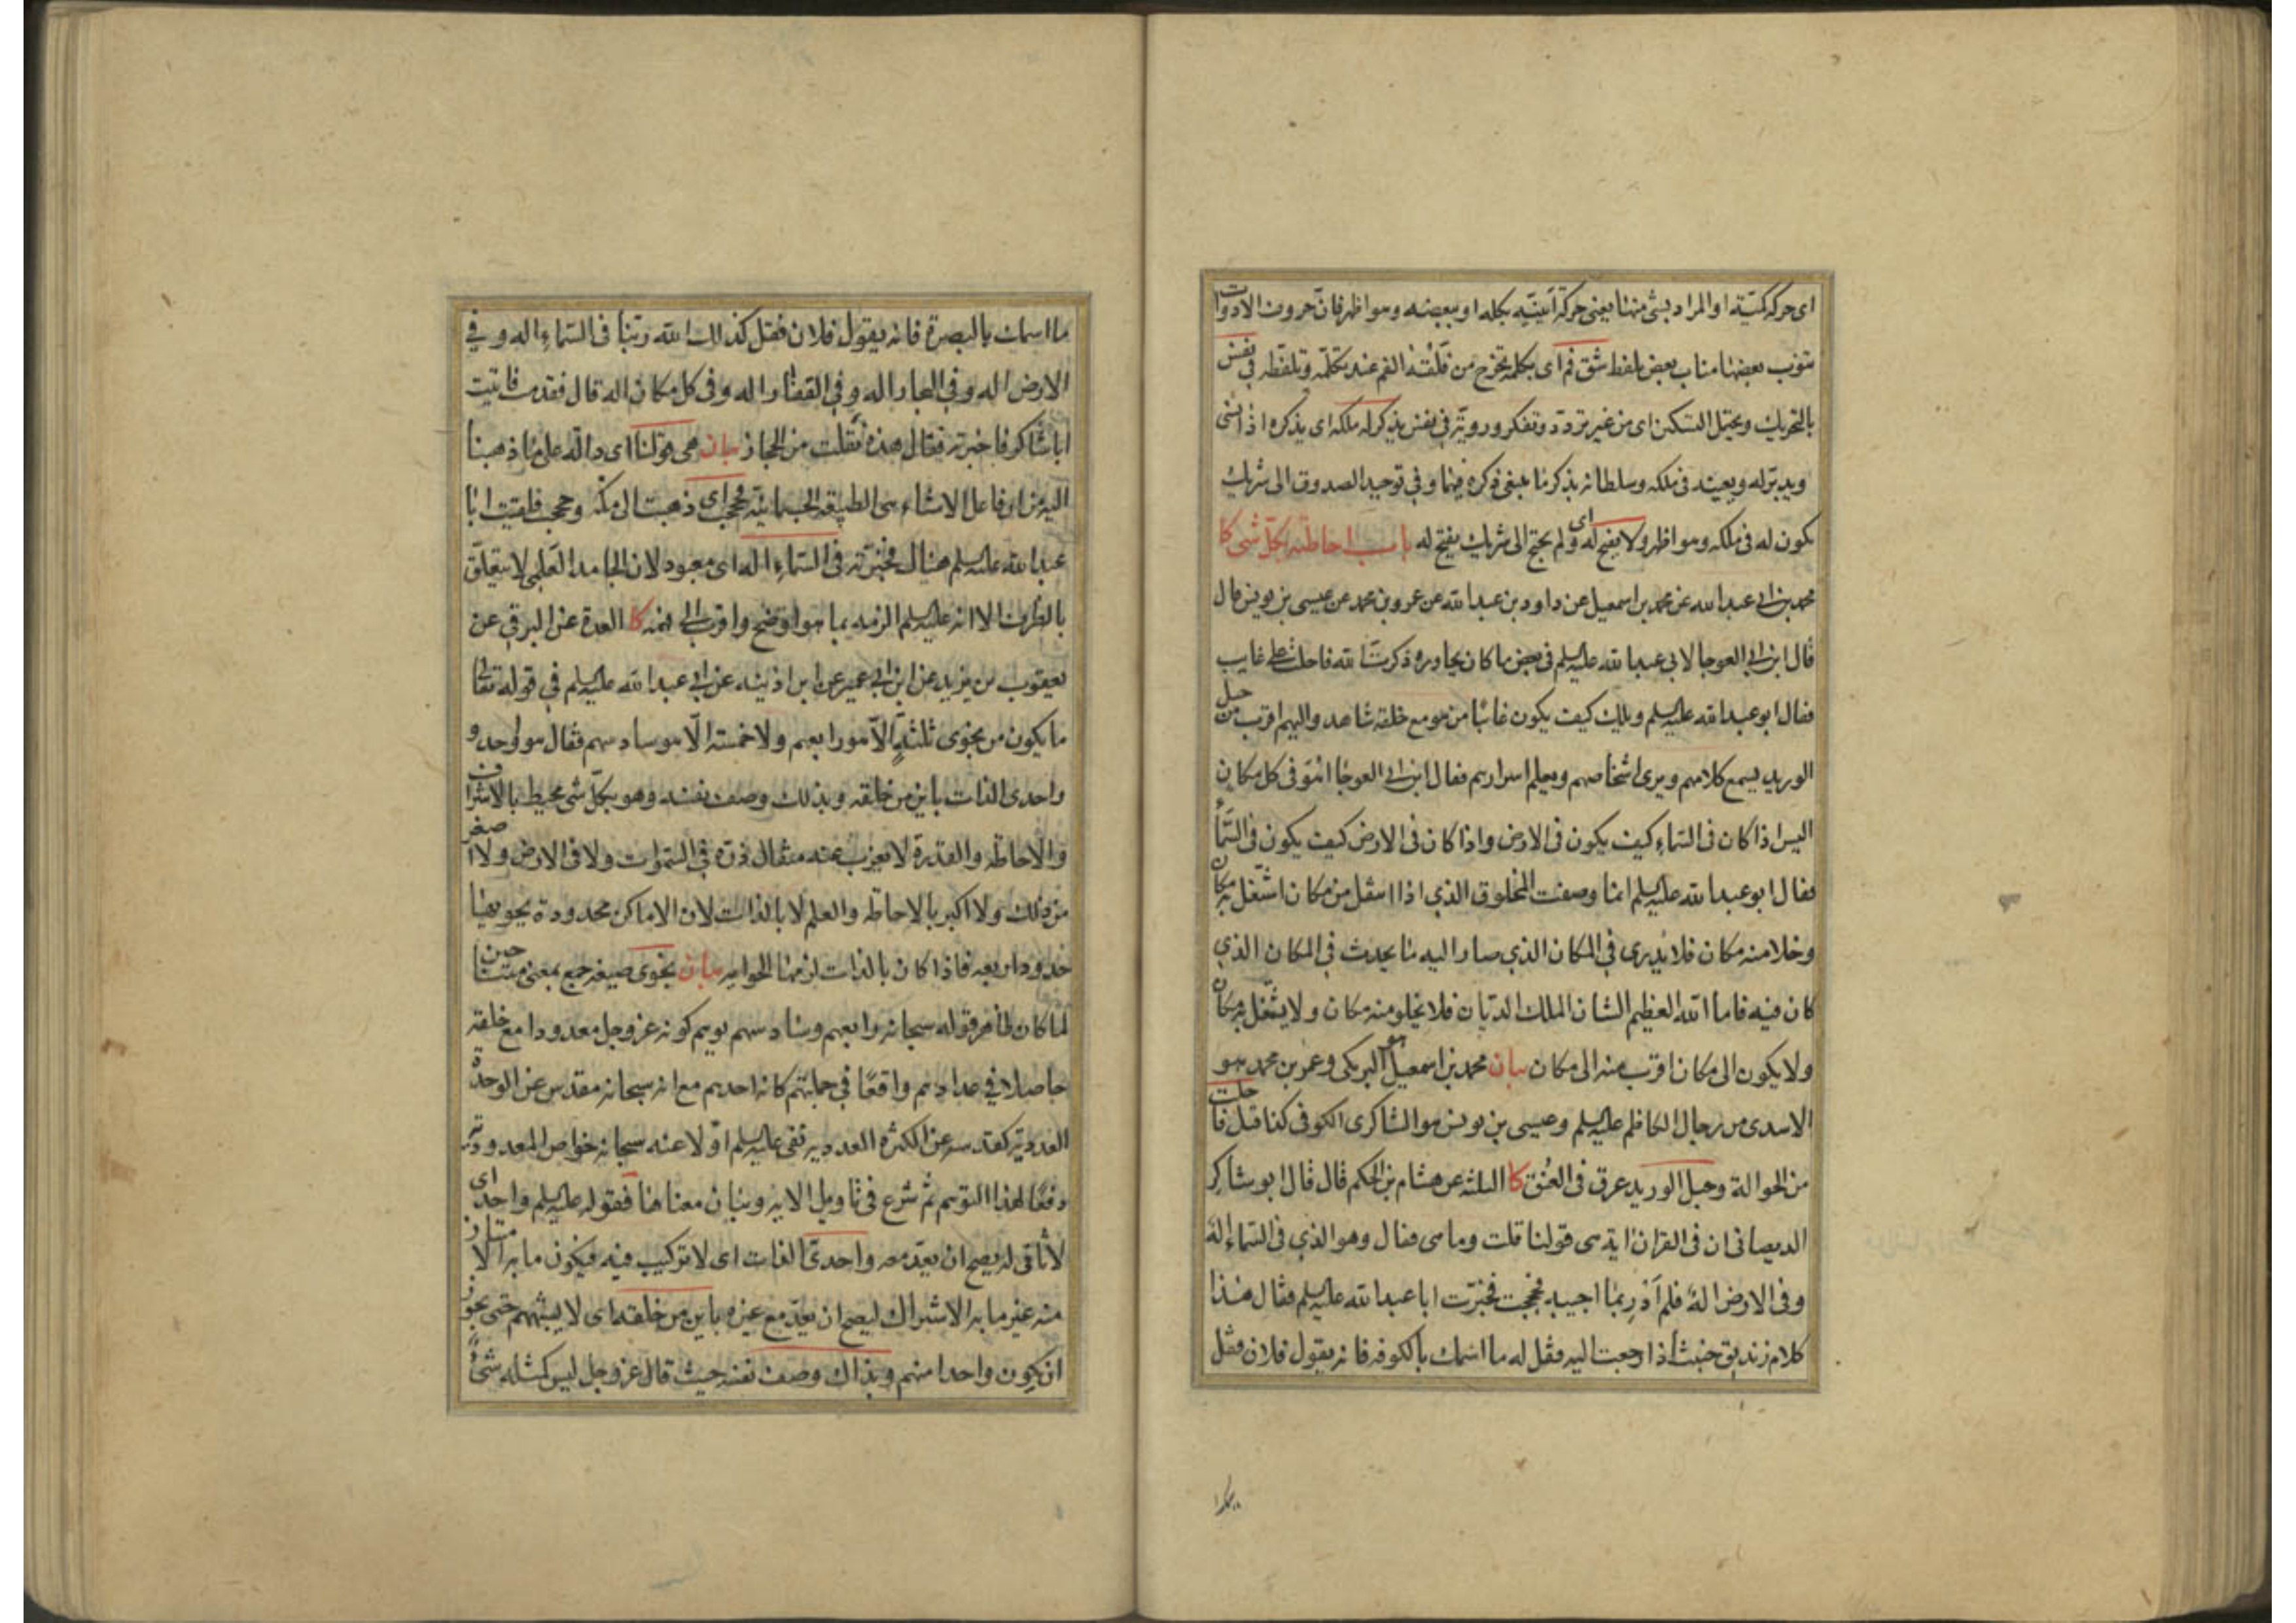 اى حركة كمية او المراد بشئ منها يعنى حركة اينية بكله او ببعضه وهو اظهر فان حروف الادوات
ينوب بعضها مناب بعض بلفظ شق فم اى بكلمة تخرج من فلقة الفم عند تكلمه وتلفظه فى نفس
بالتحريك ويحتمل التسكين اى من غير تردد وتفكر وروية فى نفس يذكر له ملكه اى يذكره اذا نسى
ويدبر له ويعينه فى ملكه وسلطانه بذكر ما ينبغى ذكره فيها وفى توحيد الصدوق الى شريك
يكون له فى ملكه وهو اظهر ولا يفتح له اى ولم يحتج الى شريك يفتح له باب احاطته بكل شئ كا
محمد بن ابى عبد الله عن محمد بن اسمعيل عن داود بن عبد الله عن عمرو بن محمد عن عيسى بن يونس قال
قال ابن ابى العوجا لابى عبد الله عليه السلم فى بعض ما كان يحاوره ذكرت الله فاحلت على غايب
فقال ابو عبد الله عليه السلم ويلك كيف يكون غائبا من هو مع خلقه شاهد واليهم اقرب من حبل
الوريد يسمع كلامهم ويرى اشخاصهم ويعلم اسرارهم فقال ابن ابى العوجا اهو فى كل مكان
اليس اذا كان فى السماء كيف يكون فى الارض واذا كان فى الارض كيف يكون فى السماء
فقال ابو عبد الله عليه السلم انما وصفت المخلوق الذي اذا انتقل من مكان اشتغل به مكان
وخلا منه مكان فلا يدرى فى المكان الذي صار اليه ما يحدث فى المكان الذي
كان فيه فاما الله العظيم الشان الملك الديان فلا يخلو منه مكان ولا يشتغل به مكان
ولا يكون الى مكان اقرب منه الى مكان بيان محمد بن اسمعيل هو البرمكى وعمرو بن محمد هو
الاسدى من رجال الكاظم عليه السلم وعيسى بن يونس هو الشاكرى الكوفى كذا قيل فاحلت
من الحوالة وحبل الوريد عرق فى العنق كا الثلثة عن هشام بن الحكم قال قال ابو شاكر
الديصانى ان فى القران اية هى قولنا قلت وما هى فقال وهو الذي فى السماء اله
وفى الارض اله فلم ادر بما اجيبه فحججت فخبرت ابا عبد الله عليه السلم فقال هذا
كلام زنديق خبيث اذا رجعت اليه فقل له ما اسمك بالكوفة فانه يقول فلان فقل
ما اسمك بالبصرة فانه يقول فلان فقل كذلك الله ربنا فى السماء اله وفي
الارض اله وفى البحار اله وفى القفار اله وفى كل مكان اله قال فقدمت فاتيت
ابا شاكر فاخبرته فقال هذه نقلت من الحجاز بيان هى قولنا اى دالة على ما ذهبنا
اليه من ان فاعل الاشياء هى الطبيعة الجسمانية فحججت اى ذهبت الى مكة وحججت فلقيت ابا
عبد الله عليه السلم هناك فخبرته فى السماء اله اى معبود لان الجامد العلمى لا يتعلق
بالظرف الا انه عليه السلم الزمه بما هو اوضح واقرب الى فهمه كا العدة عن البرقى عن
يعقوب بن يزيد عن ابن ابى عمير عن ابن اذينه عن ابى عبد الله عليه السلم فى قوله تعالى
ما يكون من نجوى ثلثة الا هو رابعهم ولا خمسة الا هو سادسهم فقال هو واحد و
واحدى الذات باين من خلقه وبذلك وصف نفسه وهو بكل شئ محيط بالاشراف
والاحاطة والقدرة لا يعزب عنه مثقال ذرة فى السموات ولا فى الارض ولا اصغر
من ذلك ولا اكبر بالاحاطة والعلم لا بالذات لان الاماكن محدودة يحويها
حدود اربعه فاذا كان بالذات لزمها الحوايه بيان نجوى صيغة جمع بمعنى متناجين
لما كان ظاهر قوله سبحانه رابعهم وسادسهم يوهم كونه عز وجل معدودا مع خلقه
حاصلا فى عدادهم واقعا فى جملتهم كانه احدهم مع انه سبحانه مقدس عن الوحدة
العددية كتقدسه عن الكثرة العددية نفى عليه السلم اولا عنه سبحانه خواص المعدودية
دفعا لهذا التوهم ثم شرع فى تاويل الاية وبيان معناها فقوله عليه السلم واحد اى
لا ثانى له يصح ان يعد معه واحدى الذات اى لا تركيب فيه فيكون ما به الامتياز
منه غير ما به الاشتراك ليصح ان يعد مع غيره باين من خلقه اى لا يشبههم حتى يجوز
ان يكون واحدا منهم وبذلك وصف نفسه حيث قال عز وجل ليس كمثله شئ